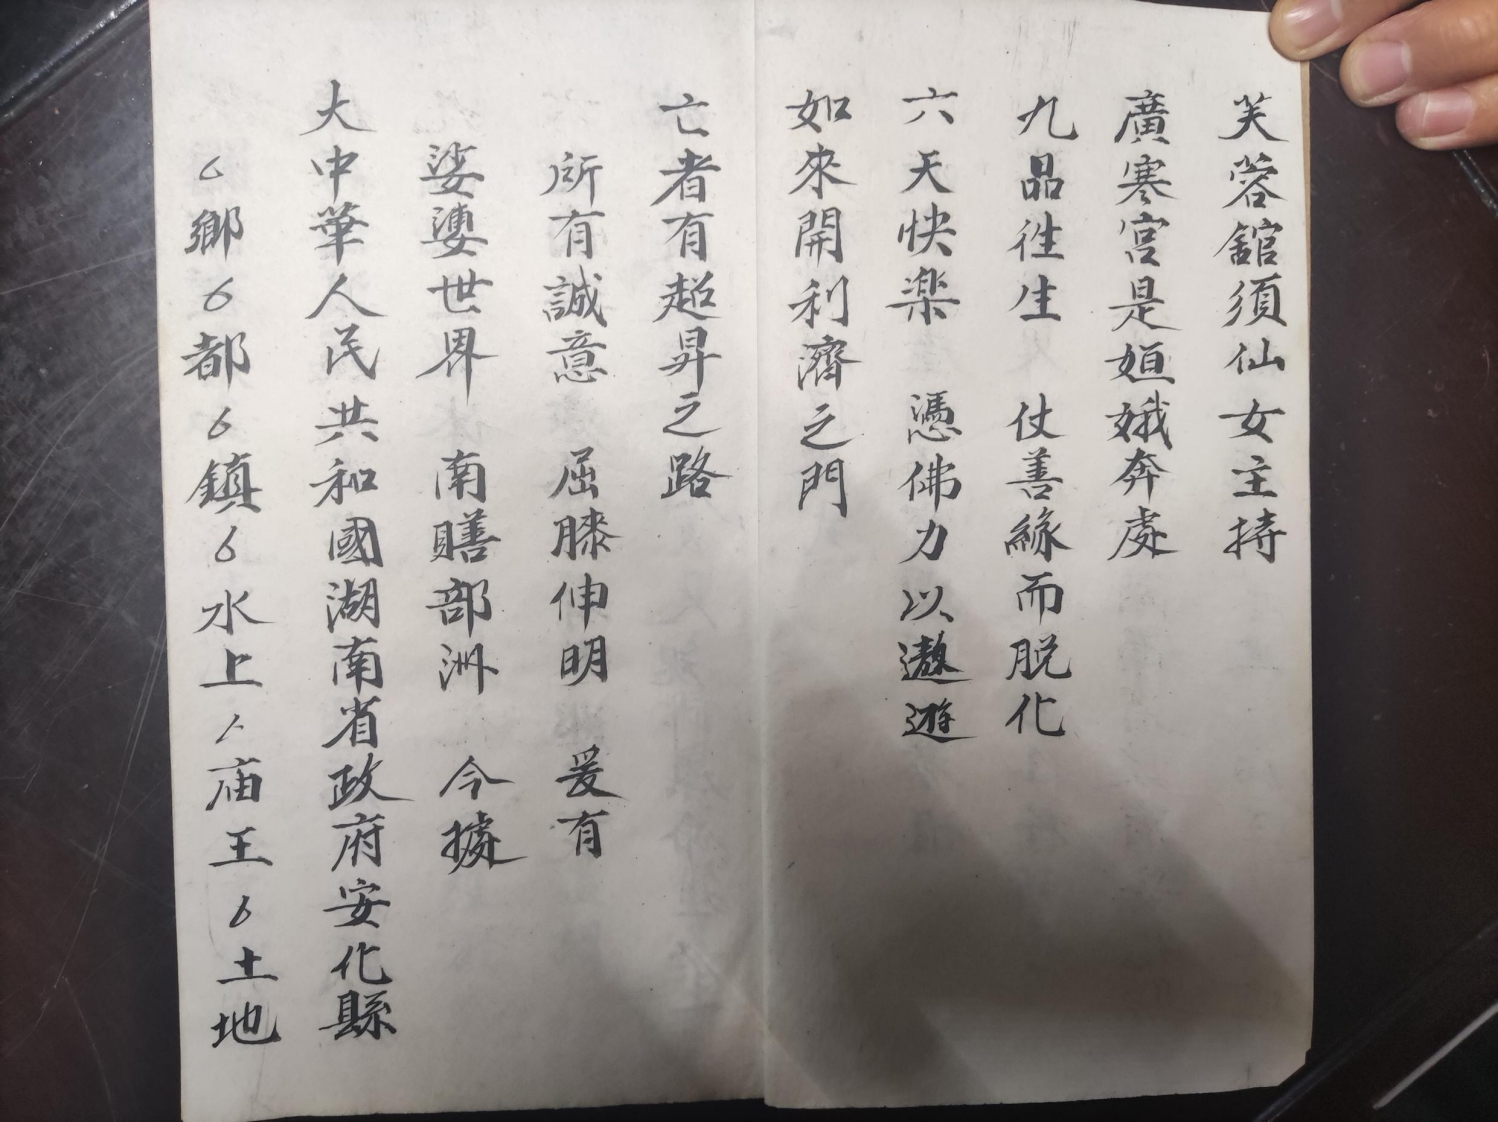 芙蓉舘須仙女主持
廣寒宮是姮娥奔處
九品徃生　仗善緣而脱化
六天快楽　憑佛力以遨遊
如來開利濟之門
亡者有超昇之路
所有誠意　屈膝伸明　爰有
娑婆世界　南贍部洲　今據
大中華人民共和國湖南省政府安化縣
厶鄉厶都厶鎮厶水上厶庙王厶土地